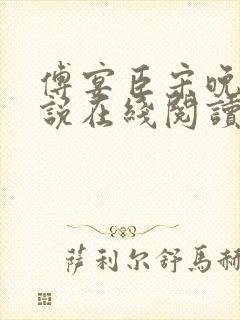 傅宴臣宋晚
說在綫閱讀
萨利尔舒馬赫